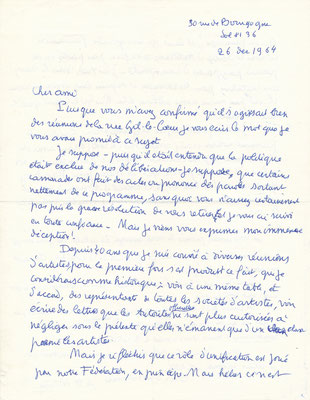 30 rue de Bourgogne
Sol 81 36
26 Dec 1964
Cher ami
Puisque vous m'avez confirmé qu'il s'agissait bien
des réunions de la rue Gît-le-Cœur, je vous écris le mot que je
vous avais promis à ce sujet
Je suppose - puisqu'il était entendu que la politique
était exclue de nos délibérations - je suppose, que certains
camarades ont fait des actes ou prononcé des paroles sortant
nettement de ce programme, sans quoi vous n'auriez certainement
pas pris la grave résolution de vous retirer et je vous ai suivi
en toute confiance - Mais je viens vous exprimer mon immense
déception!
Depuis 40 ans que je suis convié à diverses réunions
d'artistes pour la première fois s'est produit ce fait, que je
considérais comme historique: voir à une même table, et
d'accord, des représentants de toutes les sociétés d'artistes, voir
écrire des lettres que les Autorités officielles ne sont plus autorisées à
négliger sous le prétexte qu'elles n'émanent que d'un
parmi les artistes.
Mais je réfléchis que ce rôle d'unification est joué
par notre Fédération, en principe. Mais hélas ce n'est